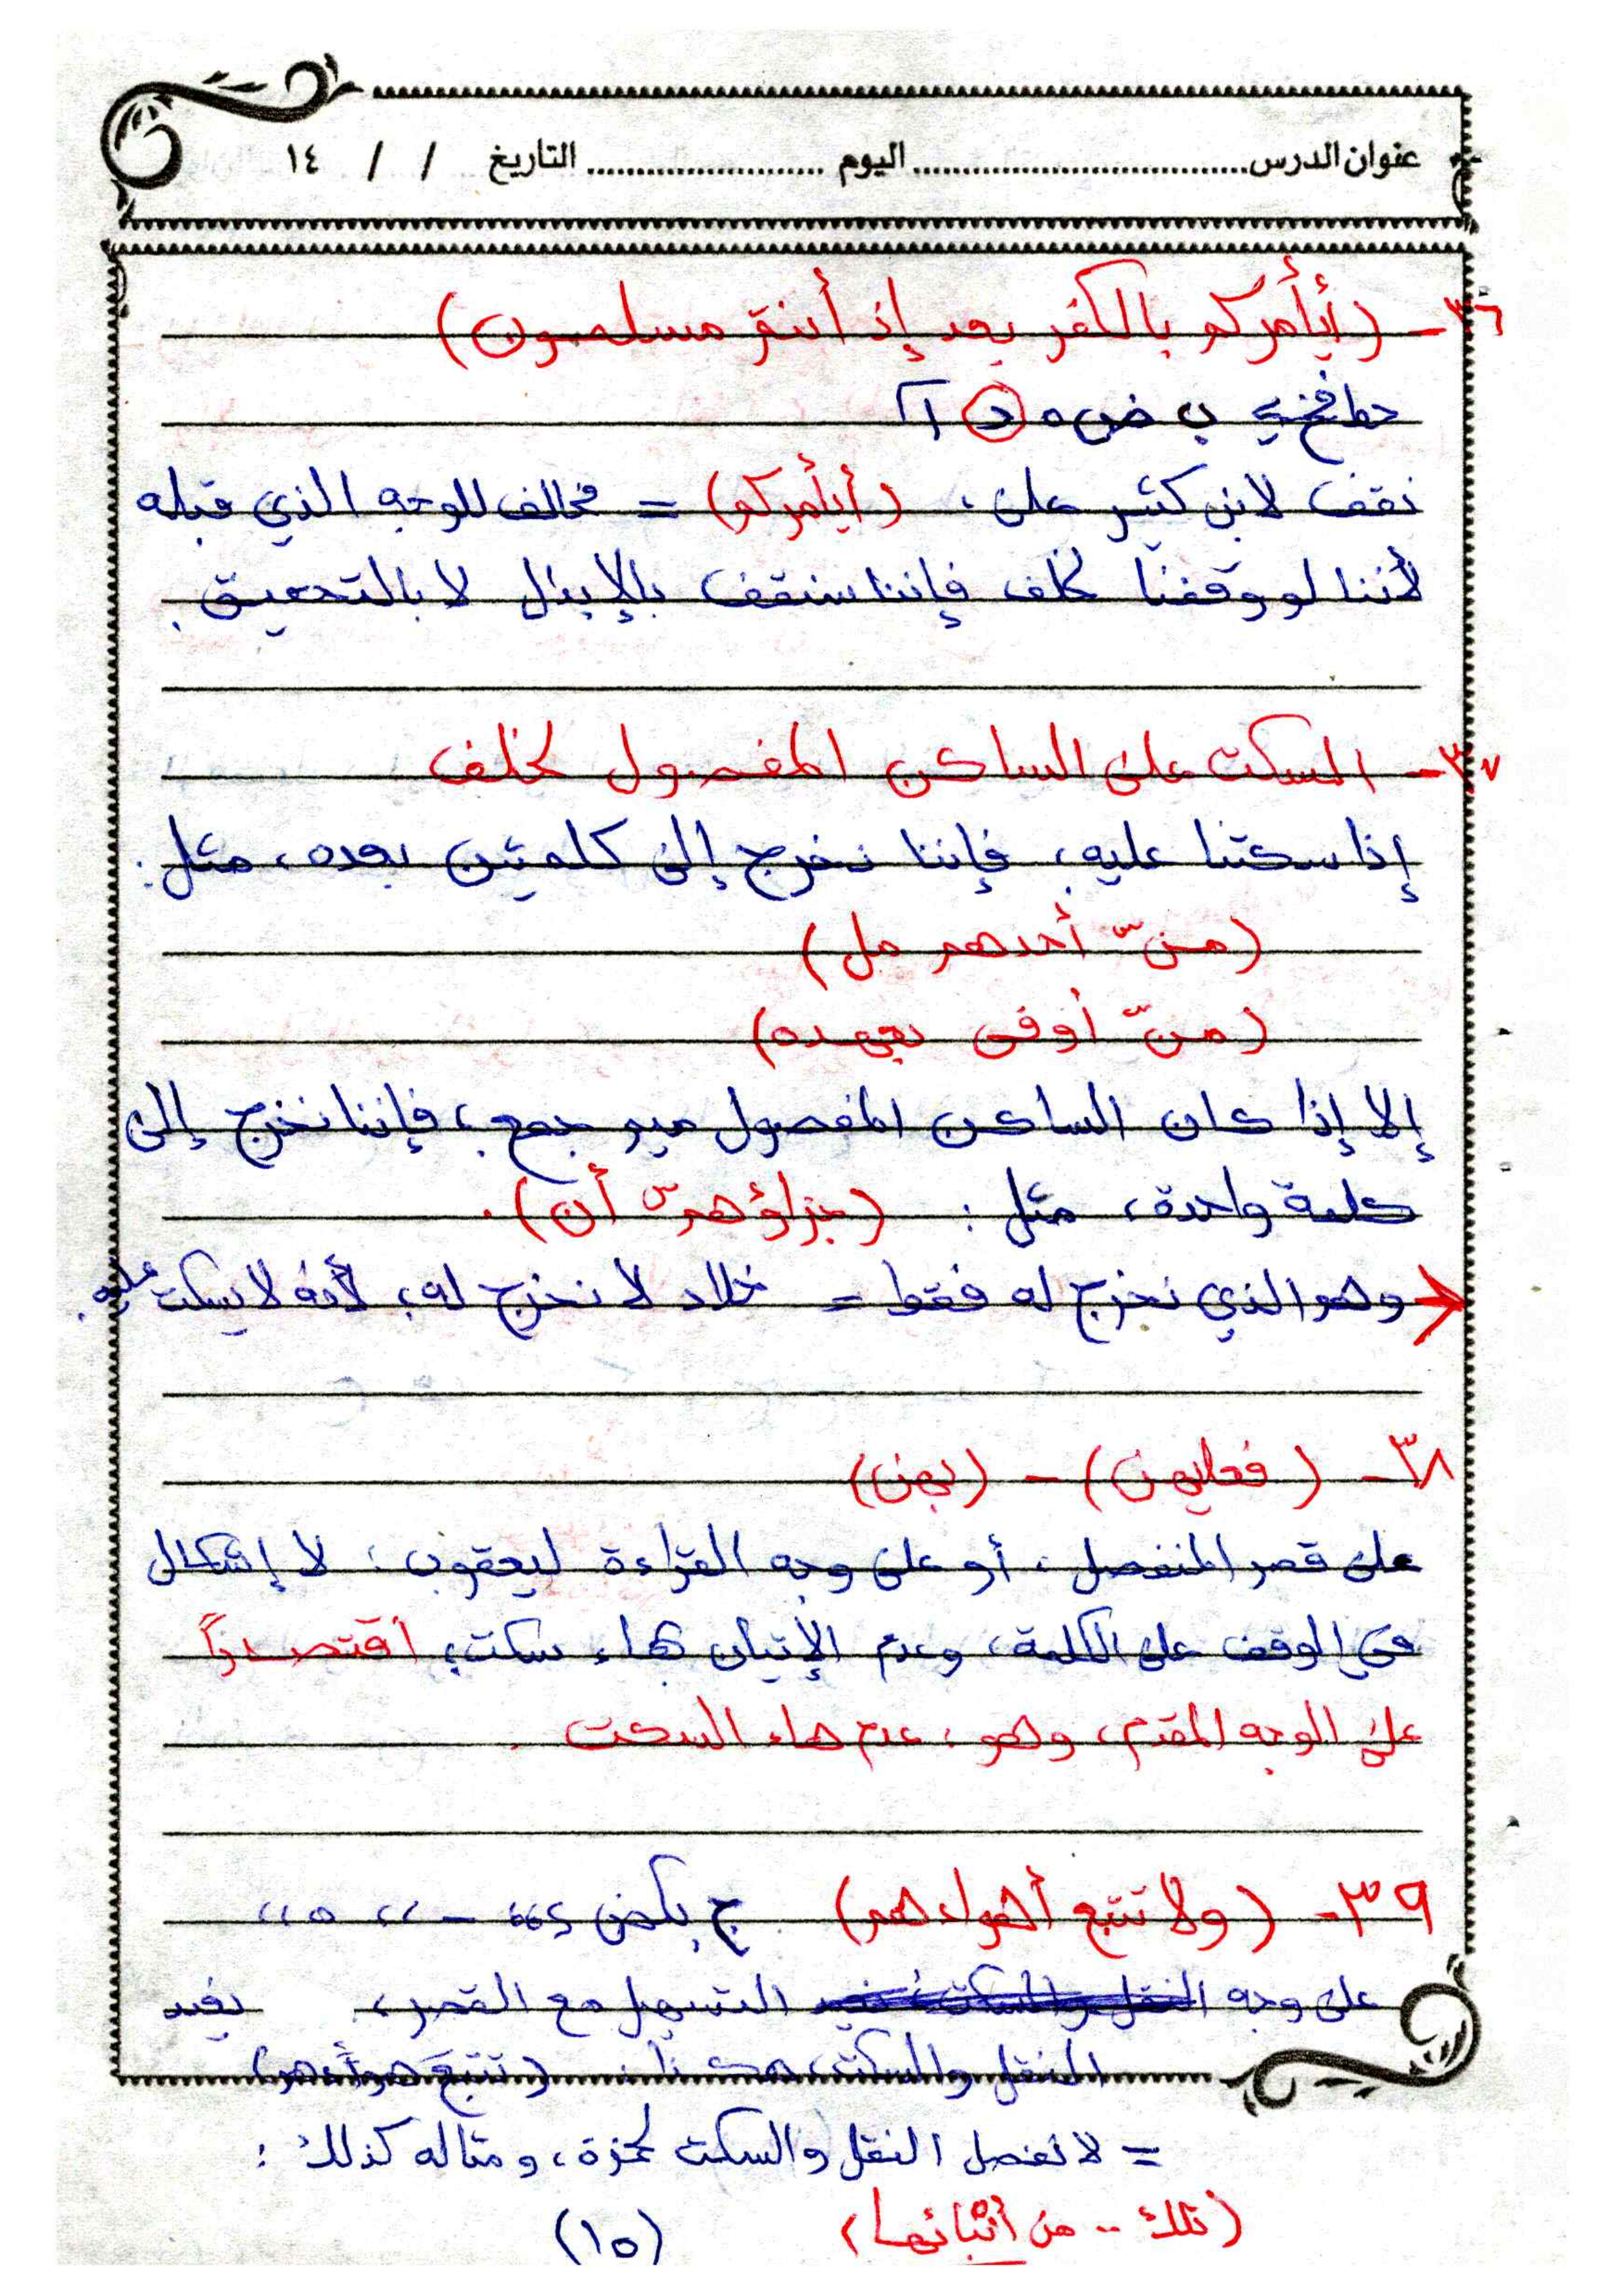 عنوان الدرس................................ اليوم ....................... التاريخ / / ١٤
٣٦ - (أيأمركم بالكفر بعد إذ أنتم مسلمون)
د
نقف لابن كثير على: (أيأمركم) = مخالف للوجه الذي قبله
لأننا لو وقفنا لخلف فإننا سنقف بالإبدال لا بالتحقيق.
٣٧ - السكت على الساكن المفصول لخلف
إذا سكتنا عليه، فإننا نخرج إلى كلمتين بعده، مثل:
(منْ س أحدهم مل)
(منْ س أوفى بعهده)
إلا إذا كان الساكن المفصول ميم جمع، فإننا نخرج إلى
كلمة واحدة، مثل: (جزاؤهم س أن).
وهو الذي نخرج له فقط = خلاد لا نخرج له، لأنه لا يسكت عليه.
٣٨ - (فعليهن) - (بهن)
على قصر المنفصل، أو على وجه القراءة ليعقوب: لا إشكال
في الوقف على الكلمة، وعدم الإتيان بهاء سكت، اقتصاراً
على الوجه المقدم، وهو: عدم هاء السكت.
٣٩ - (ولا تتبع أهواءهم)
على وجه التسهيل مع القصر، بعد
النقل والسكت، هكذا: (تتبع هواءهم)
= لا نفصل النقل والسكت لحمزة، ومثاله كذلك:
(تلك .. من أنبائها)
(١٥)